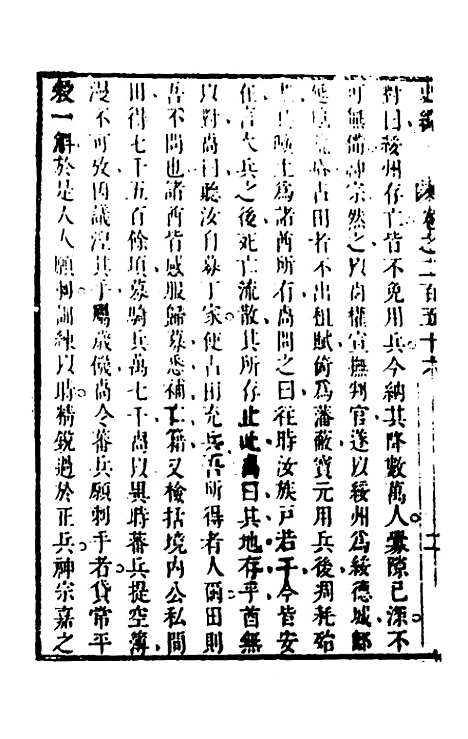 卷之二百五十六 二
對曰綏州存亡皆不免用兵今納其降數萬人釁隙已深不
可無備神宗然之以卨權宣撫判官遂以綏州為綏德城鄜
延占田者不出租賦倚為藩蔽寶元用兵後凋耗殆
其曠土為諸酋所有卨問之曰往時汝族戶若干今皆安
在言大兵之後死亡流散其所存止此卨曰其地存乎酋無
以對卨曰聽汝自募丁家使占田充兵吾所得者人爾田則
吾不問也諸酋皆感服歸募悉補亡籍又檢括境內公私間
田得七千五百餘頃募騎兵萬七千卨以異時蕃兵提空簿
漫不可攷因議涅其手屬歲饑卨令蕃兵願刺手者貸常平
穀一斛於是人人願刺訓練以時精銳過於正兵神宗嘉之